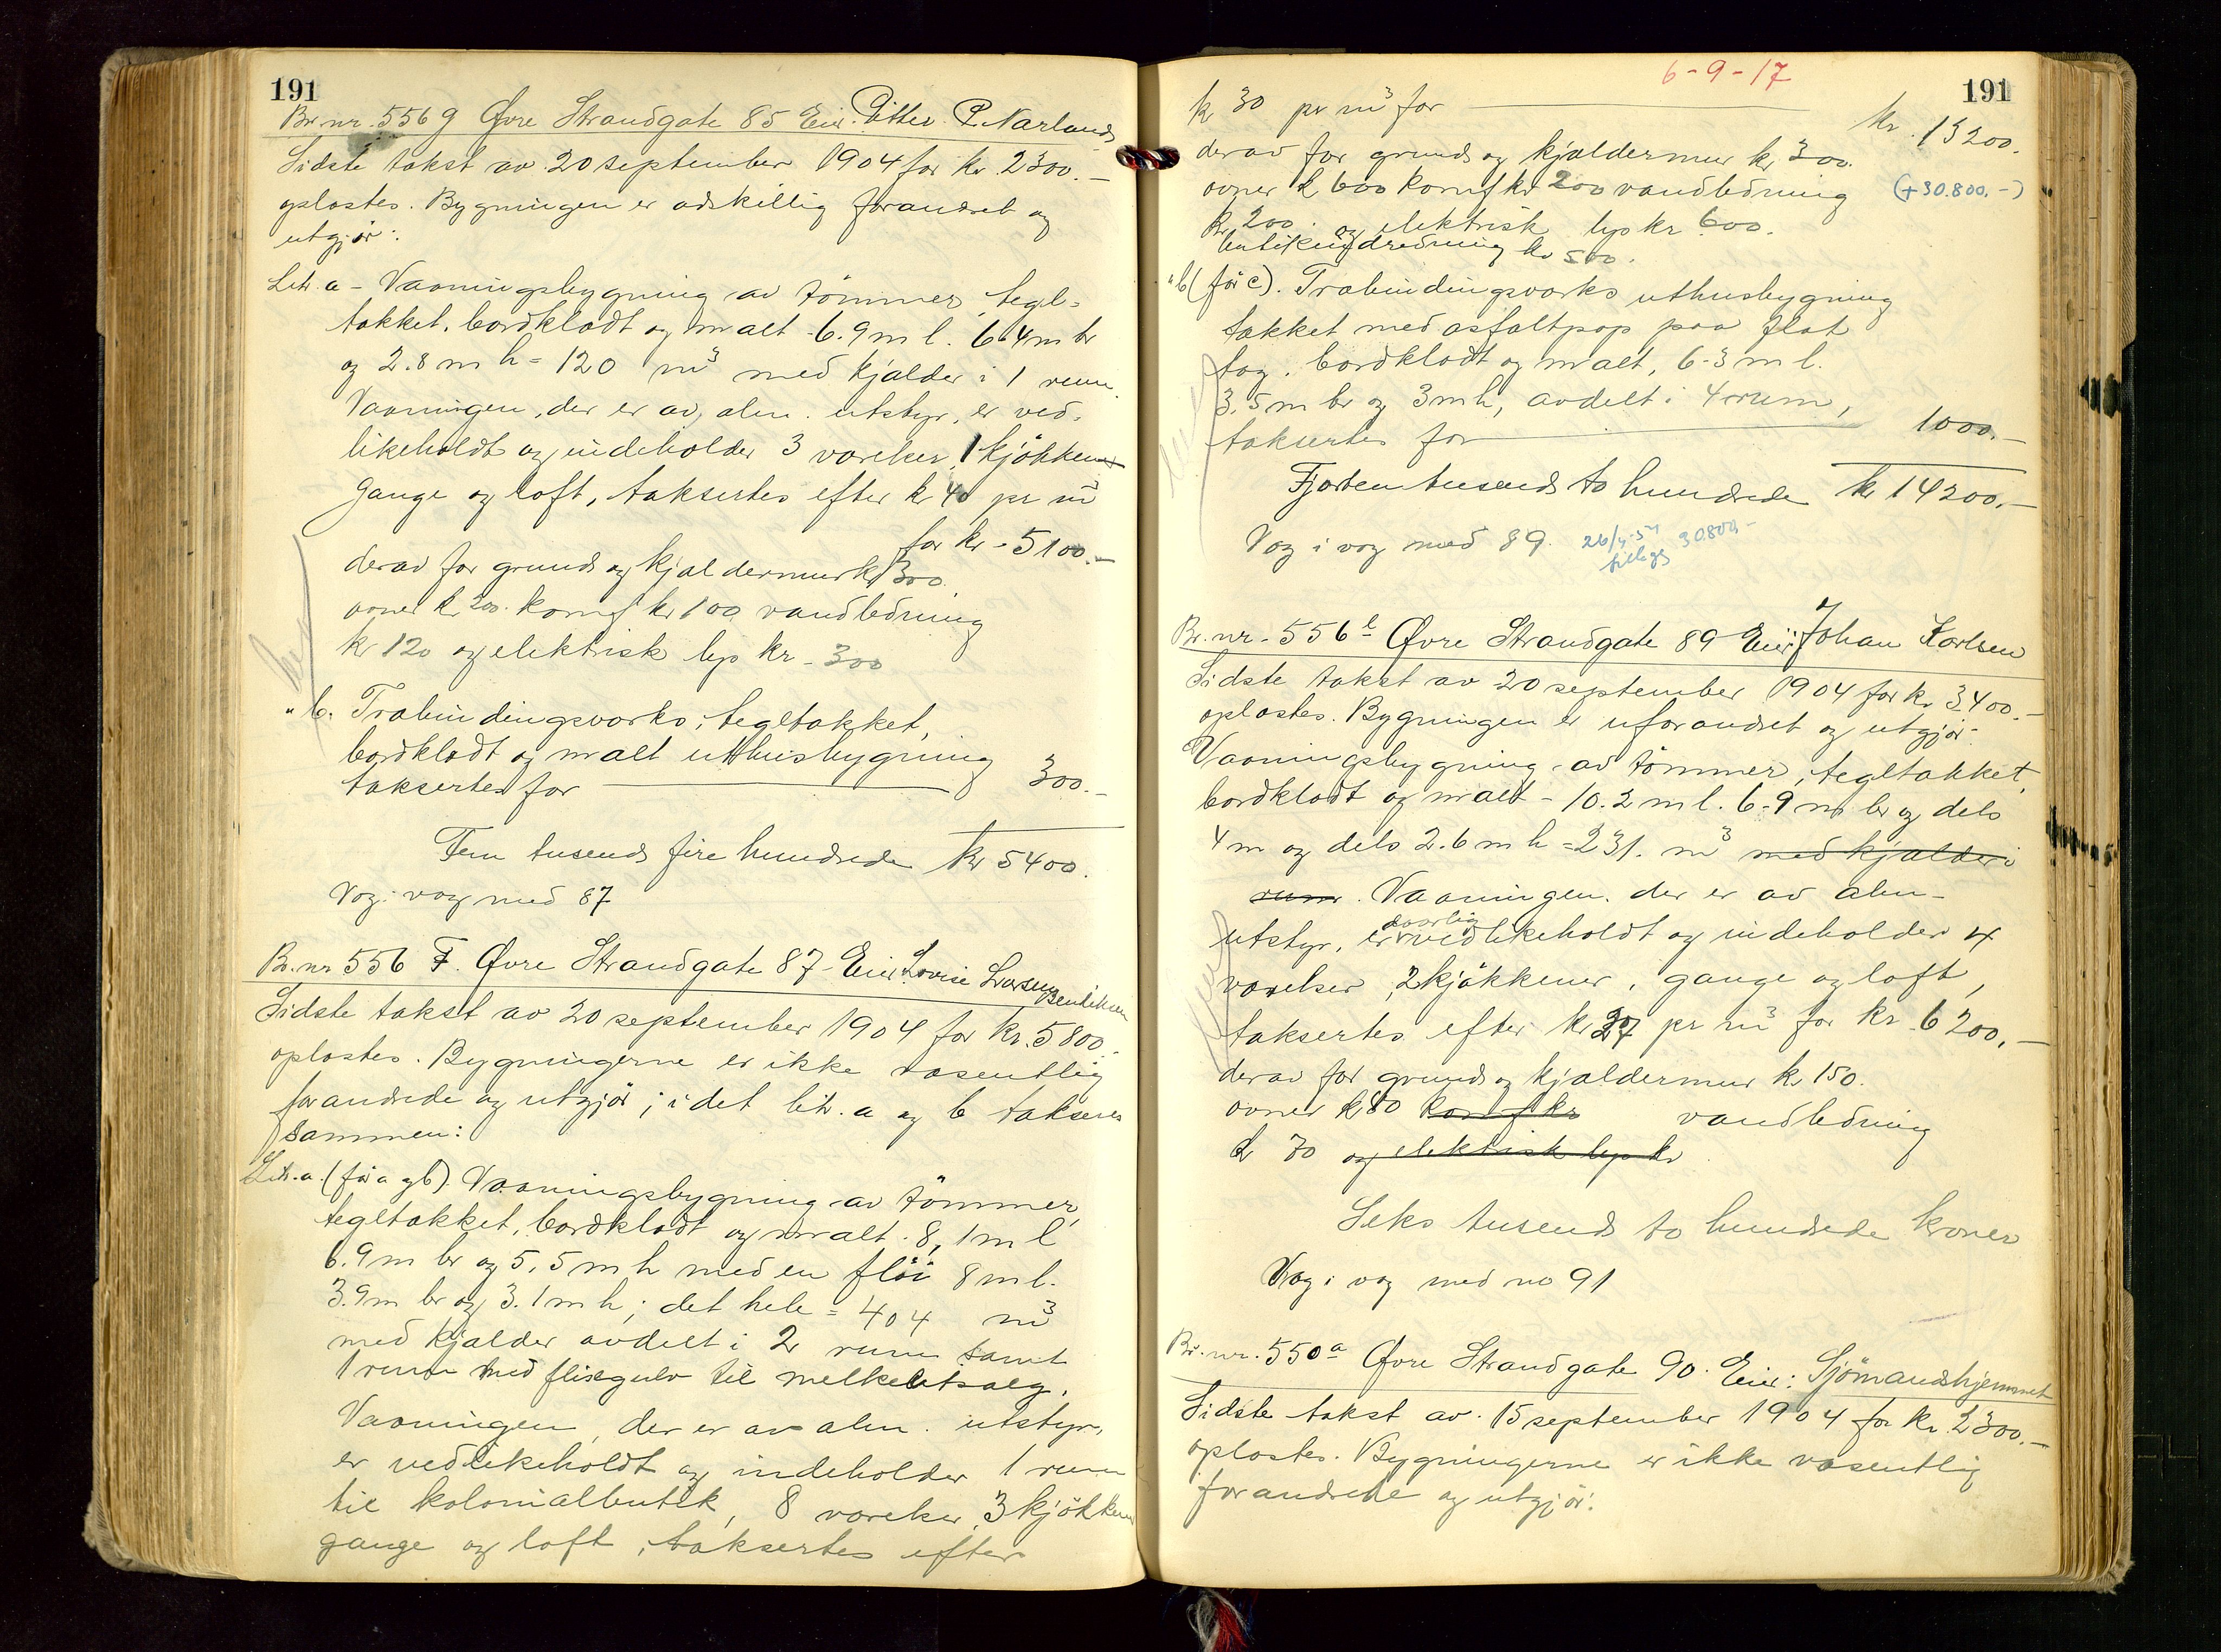 191
Br. nr. 556 g Øvre Strandgate 85 Eier. Pitter P. Narland
Sidste takst av 20 september 1904 for kr. 2300.-
oplæstes. Bygningen er adskillig forandret og
utgjør:
Litr. a - Vaaningsbygning av tömmer, tegl-
tækket, bordklædt og malt - 6.9 m l. 6.4 m br
og 2.8 m h = 120 m³ med kjælder i 1 rum.
Vaaningen, der er av alm. utstyr, er ved-
likeholdt og indeholder 3 værelser, 1 kjökken
Gange og loft, taksertes efter kr 40 pr m³
for kr - 5100.-
derav for grund og kjældermur kr 300.
ovner kr 200. komf kr 100 vandledning
kr 120 og elektrisk lys kr - 300
" b. Træbindingsværks, tegltækket,
bordklædt og malt uthusbygning
taksertes for 300.-
Fem tusend fire hundrede kr 5400.
Væg i væg med 87
Br. nr 556 F. Øvre Strandgate 87 - Eier: Lovise Larsen
Bentsen
Sidste takst av 20 september 1904 for kr. 5800.-
oplæstes. Bygningerne er ikke væsentlig
forandrede og utgjör; idet litr. a og b takseres
sammen:
Litr. a. (för a og b) Vaaningsbygning av tömmer,
tegltækket, bordklædt og malt. 8,1 m l
6.9 m br og 5,5 m h med en flöi 8 m l.
3.9 m br og 3.1 m h; det hele = 404 m³
med kjælder avdelt i 2 rum samt
1 rum med flisegulv til melkeutsalg.
Vaaningen, der er av alm. utstyr,
er vedlikeholdt og indeholder 1 rum
til kolonialbutik, 8 værelser, 3 kjökkener
gange og loft, taksertes efter
6-9-17
191
kr 30 pr m³ for kr. 13200.
derav for grund og kjældermur kr 300.
ovner kr 600 komf kr 200 vandledning (+30.800.-)
kr 200. og elektrisk lys kr 600.
butikindredning kr 500.
" b (för c). Træbindingsværks uthusbygning
tækket med asfaltpap paa flat
tag, bordklædt og malt, 6.3 m l.
3,5 m br og 3 m h, avdelt i 4 rum,
taksertes for 1000.-
Fjorten tusend to hundrede kr 14200.-
Væg i væg med 89. 26/4-51 30800,-
tillegg
Br. nr. 556 e Øvre Strandgate 89 Eier: Johan Karlsen
Sidste takst av 20 september 1904 for kr 3400.-
oplæstes. Bygningen er uforandret og utgjör-
Vaaningsbygning av tömmer, tegltækket,
bordklædt og malt - 10.2 m l. 6.9 m br og dels
4 m og dels 2.6 m h = 231. m³ med kjælder i
rum. Vaaningen. der er av alm-
utstyr, er daarlig vedlikeholdt og indeholder 4
værelser, 2 kjökkener, gange og loft,
taksertes efter kr 27 pr m³ for kr 6200.-
derav for grund og kjældermur kr 150.
ovner kr 80 komf kr vandledning
kr 70 og elektrisk lys kr
Seks tusend to hundrede kroner
Væg i væg med no 91
Br. nr. 550 a Øvre Strandgate 90. Eier: Sjömandshjemmet
Sidste takst av 15 september 1904 for kr. 2300.-
oplæstes. Bygningerne er ikke væsentlig
forandrede og utgjör: